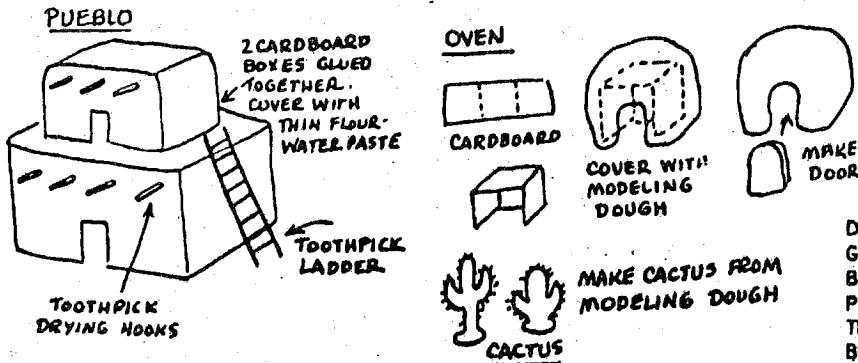 PUEBLO
2 CARDBOARD
BOXES GLUED
TOGETHER.
COVER WITH
THIN FLOUR-
WATER PASTE
TOOTHPICK
LADDER
TOOTHPICK
DRYING HOOKS
OVEN
CARDBOARD
COVER WITH
MODELING
DOUGH
MAKE
DOOR
MAKE CACTUS FROM
MODELING DOUGH
CACTUS
D
G
B
P
T
B